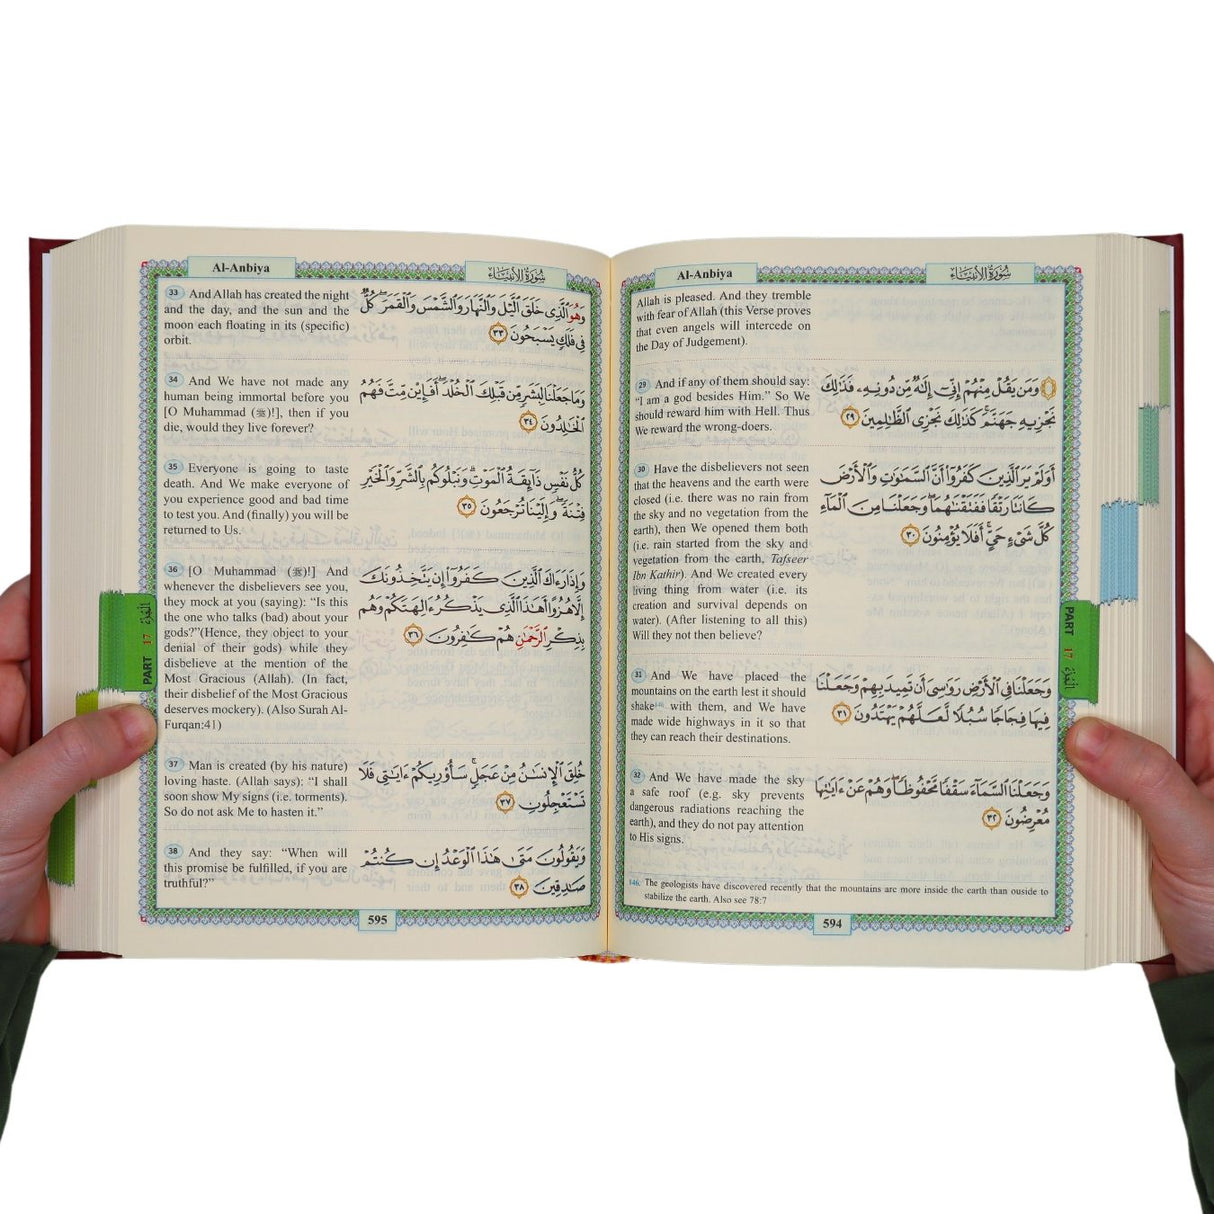 Al-Anbiya
سُورَةُ الأَنبِيَاء
Allah is pleased. And they tremble
with fear of Allah (this Verse proves
that even angels will intercede on
the Day of Judgement).
29 And if any of them should say:
"I am a god besides Him." So We
should reward him with Hell. Thus
We reward the wrong-doers.
وَمَن يَقُلْ مِنْهُمْ إِنِّىٓ إِلَٰهٌ مِّن دُونِهِۦ فَذَٰلِكَ
نَجْزِيهِ جَهَنَّمَ ۚ كَذَٰلِكَ نَجْزِى ٱلظَّٰلِمِينَ ٢٩
30 Have the disbelievers not seen
that the heavens and the earth were
closed (i.e. there was no rain from
the sky and no vegetation from the
earth), then We opened them both
(i.e. rain started from the sky and
vegetation from the earth, Tafseer
Ibn Kathir). And We created every
living thing from water (i.e. its
creation and survival depends on
water). (After listening to all this)
Will they not then believe?
أَوَلَمْ يَرَ ٱلَّذِينَ كَفَرُوٓا۟ أَنَّ ٱلسَّمَٰوَٰتِ وَٱلْأَرْضَ
كَانَتَا رَتْقًا فَفَتَقْنَٰهُمَا ۖ وَجَعَلْنَا مِنَ ٱلْمَآءِ
كُلَّ شَىْءٍ حَىٍّ ۖ أَفَلَا يُؤْمِنُونَ ٣٠
31 And We have placed the
mountains on the earth lest it should
shake146 with them, and We have
made wide highways in it so that
they can reach their destinations.
وَجَعَلْنَا فِى ٱلْأَرْضِ رَوَٰسِىَ أَن تَمِيدَ بِهِمْ وَجَعَلْنَا
فِيهَا فِجَاجًا سُبُلًا لَّعَلَّهُمْ يَهْتَدُونَ ٣١
32 And We have made the sky
a safe roof (e.g. sky prevents
dangerous radiations reaching the
earth), and they do not pay attention
to His signs.
وَجَعَلْنَا ٱلسَّمَآءَ سَقْفًا مَّحْفُوظًا ۖ وَهُمْ عَنْ ءَايَٰتِهَا
مُعْرِضُونَ ٣٢
146: The geologists have discovered recently that the mountains are more inside the earth than ouside to
stabilize the earth. Also see 78:7
594
PART 17 الجُزْءُ
Al-Anbiya
سُورَةُ الأَنبِيَاء
33 And Allah has created the night
and the day, and the sun and the
moon each floating in its (specific)
orbit.
وَهُوَ ٱلَّذِى خَلَقَ ٱلَّيْلَ وَٱلنَّهَارَ وَٱلشَّمْسَ وَٱلْقَمَرَ ۖ كُلٌّ
فِى فَلَكٍ يَسْبَحُونَ ٣٣
34 And We have not made any
human being immortal before you
[O Muhammad (ﷺ)!], then if you
die, would they live forever?
وَمَا جَعَلْنَا لِبَشَرٍ مِّن قَبْلِكَ ٱلْخُلْدَ ۖ أَفَإِي۟ن مِّتَّ فَهُمُ
ٱلْخَٰلِدُونَ ٣٤
35 Everyone is going to taste
death. And We make everyone of
you experience good and bad time
to test you. And (finally) you will be
returned to Us.
كُلُّ نَفْسٍ ذَآئِقَةُ ٱلْمَوْتِ ۗ وَنَبْلُوكُم بِٱلشَّرِّ وَٱلْخَيْرِ
فِتْنَةً ۖ وَإِلَيْنَا تُرْجَعُونَ ٣٥
36 [O Muhammad (ﷺ)!] And
whenever the disbelievers see you,
they mock at you (saying): "Is this
the one who talks (bad) about your
gods?"(Hence, they object to your
denial of their gods) while they
disbelieve at the mention of the
Most Gracious (Allah). (In fact,
their disbelief of the Most Gracious
deserves mockery). (Also Surah Al-
Furqan:41)
وَإِذَا رَءَاكَ ٱلَّذِينَ كَفَرُوٓا۟ إِن يَتَّخِذُونَكَ
إِلَّا هُزُوًا أَهَٰذَا ٱلَّذِى يَذْكُرُ ءَالِهَتَكُمْ وَهُم
بِذِكْرِ ٱلرَّحْمَٰنِ هُمْ كَٰفِرُونَ ٣٦
37 Man is created (by his nature)
loving haste. (Allah says): "I shall
soon show My signs (i.e. torments).
So do not ask Me to hasten it."
خُلِقَ ٱلْإِنسَٰنُ مِنْ عَجَلٍ ۚ سَأُو۟رِيكُمْ ءَايَٰتِى فَلَا
تَسْتَعْجِلُونِ ٣٧
38 And they say: "When will
this promise be fulfilled, if you are
truthful?"
وَيَقُولُونَ مَتَىٰ هَٰذَا ٱلْوَعْدُ إِن كُنتُمْ
صَٰدِقِينَ ٣٨
595
PART 17 الجُزْءُ